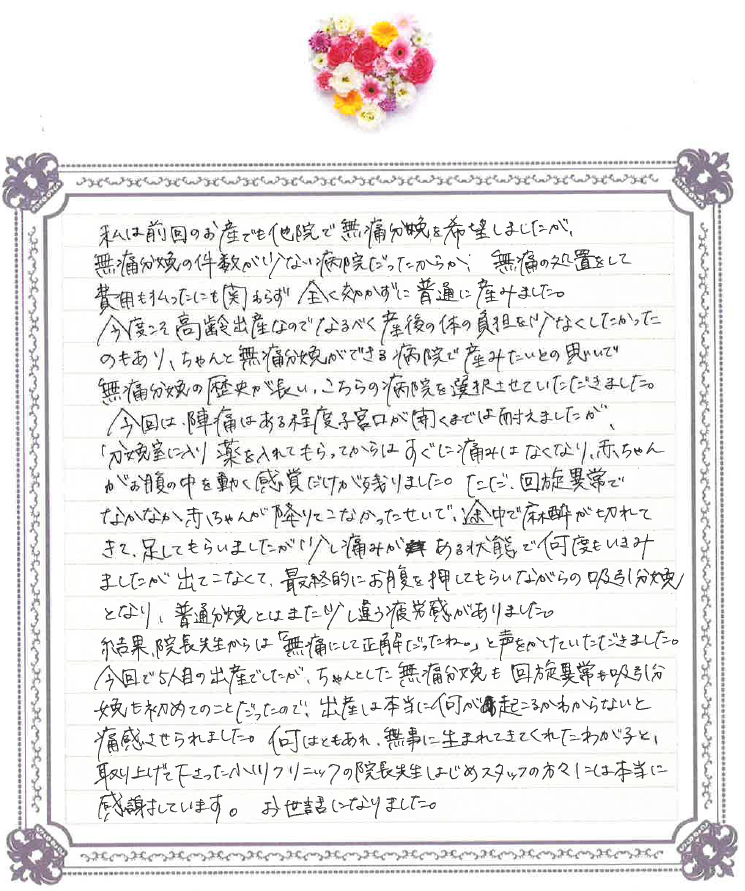 私は前回のお産でも他院で無痛分娩を希望しましたが、
無痛分娩の件数が少ない病院だったからか、無痛の処置をして
費用も払ったにも関わらず全く効かずに普通に産みました。
今度こそ高齢出産なのでなるべく産後の体の負担を少なくしたかった
のもあり、ちゃんと無痛分娩ができる病院で産みたいとの思いで
無痛分娩の歴史が長い、こちらの病院を選択させていただきました。
今回は、陣痛はある程度子宮口が開くまでは耐えましたが、
分娩室に入り薬を入れてもらってからはすぐに痛みはなくなり、赤ちゃん
がお腹の中を動く感覚だけが残りました。ただ、回旋異常で
なかなか赤ちゃんが降りてこなかったせいで、途中で麻酔が切れて
きて、足してもらいましたが少し痛みがある状態で何度もいきみ
ましたが出てこなくて、最終的にお腹を押してもらいながらの吸引分娩
となり、普通分娩とはまた少し違う疲労感がありました。
結果、院長先生からは「無痛にして正解だったね。」と声をかけていただきました。
今回で5人目の出産でしたが、ちゃんとした無痛分娩も回旋異常も吸引分
娩も初めてのことだったので、出産は本当に何が起こるかわからないと
痛感させられました。何はともあれ、無事に生まれてきてくれたわが子と、
取り上げて下さった小川クリニックの院長先生はじめスタッフの方々には本当に
感謝しています。お世話になりました。